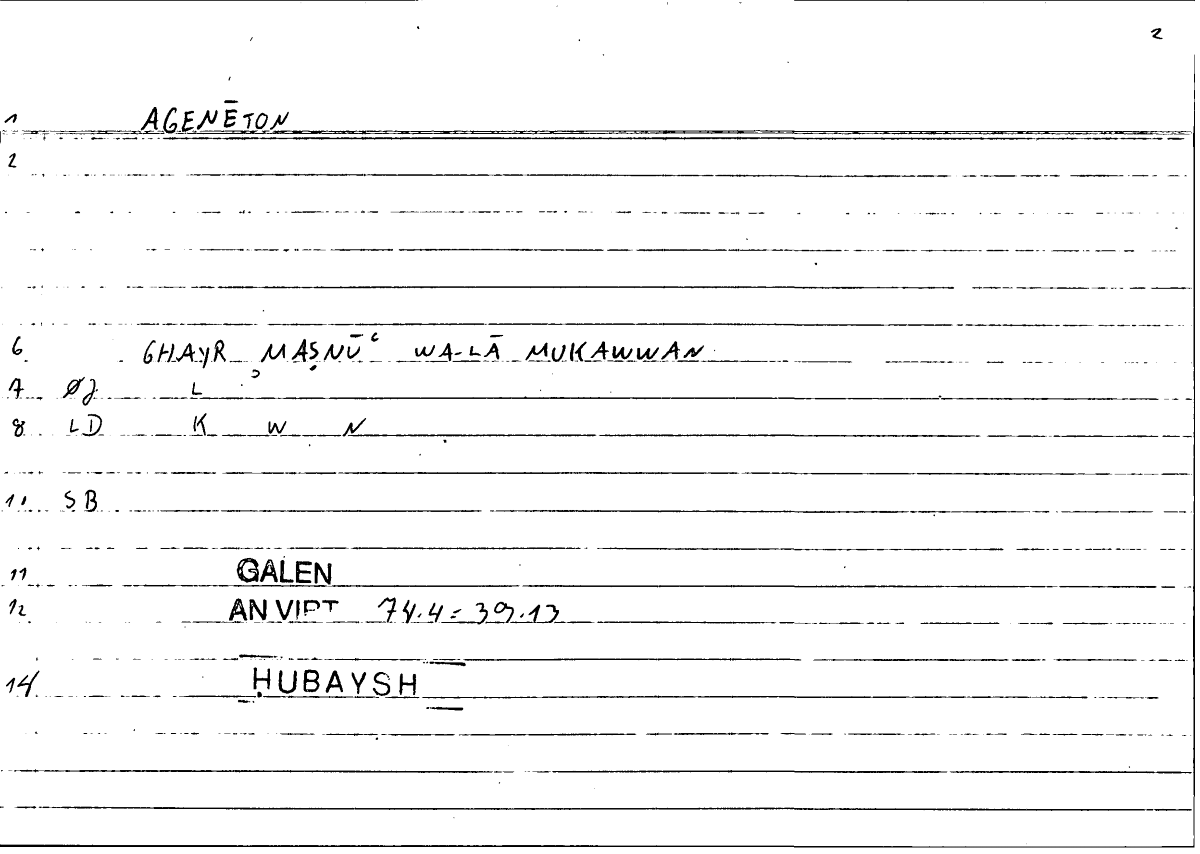 2
1 AGENĒTON
2
6 GHAYR MAṢNŪʿ WA-LĀ MUKAWWAN
7 ØJ L ʾ
8 LD K W N
10 SB
11 GALEN
12 AN VIRT 74.4 = 39.13
14 ḤUBAYSH